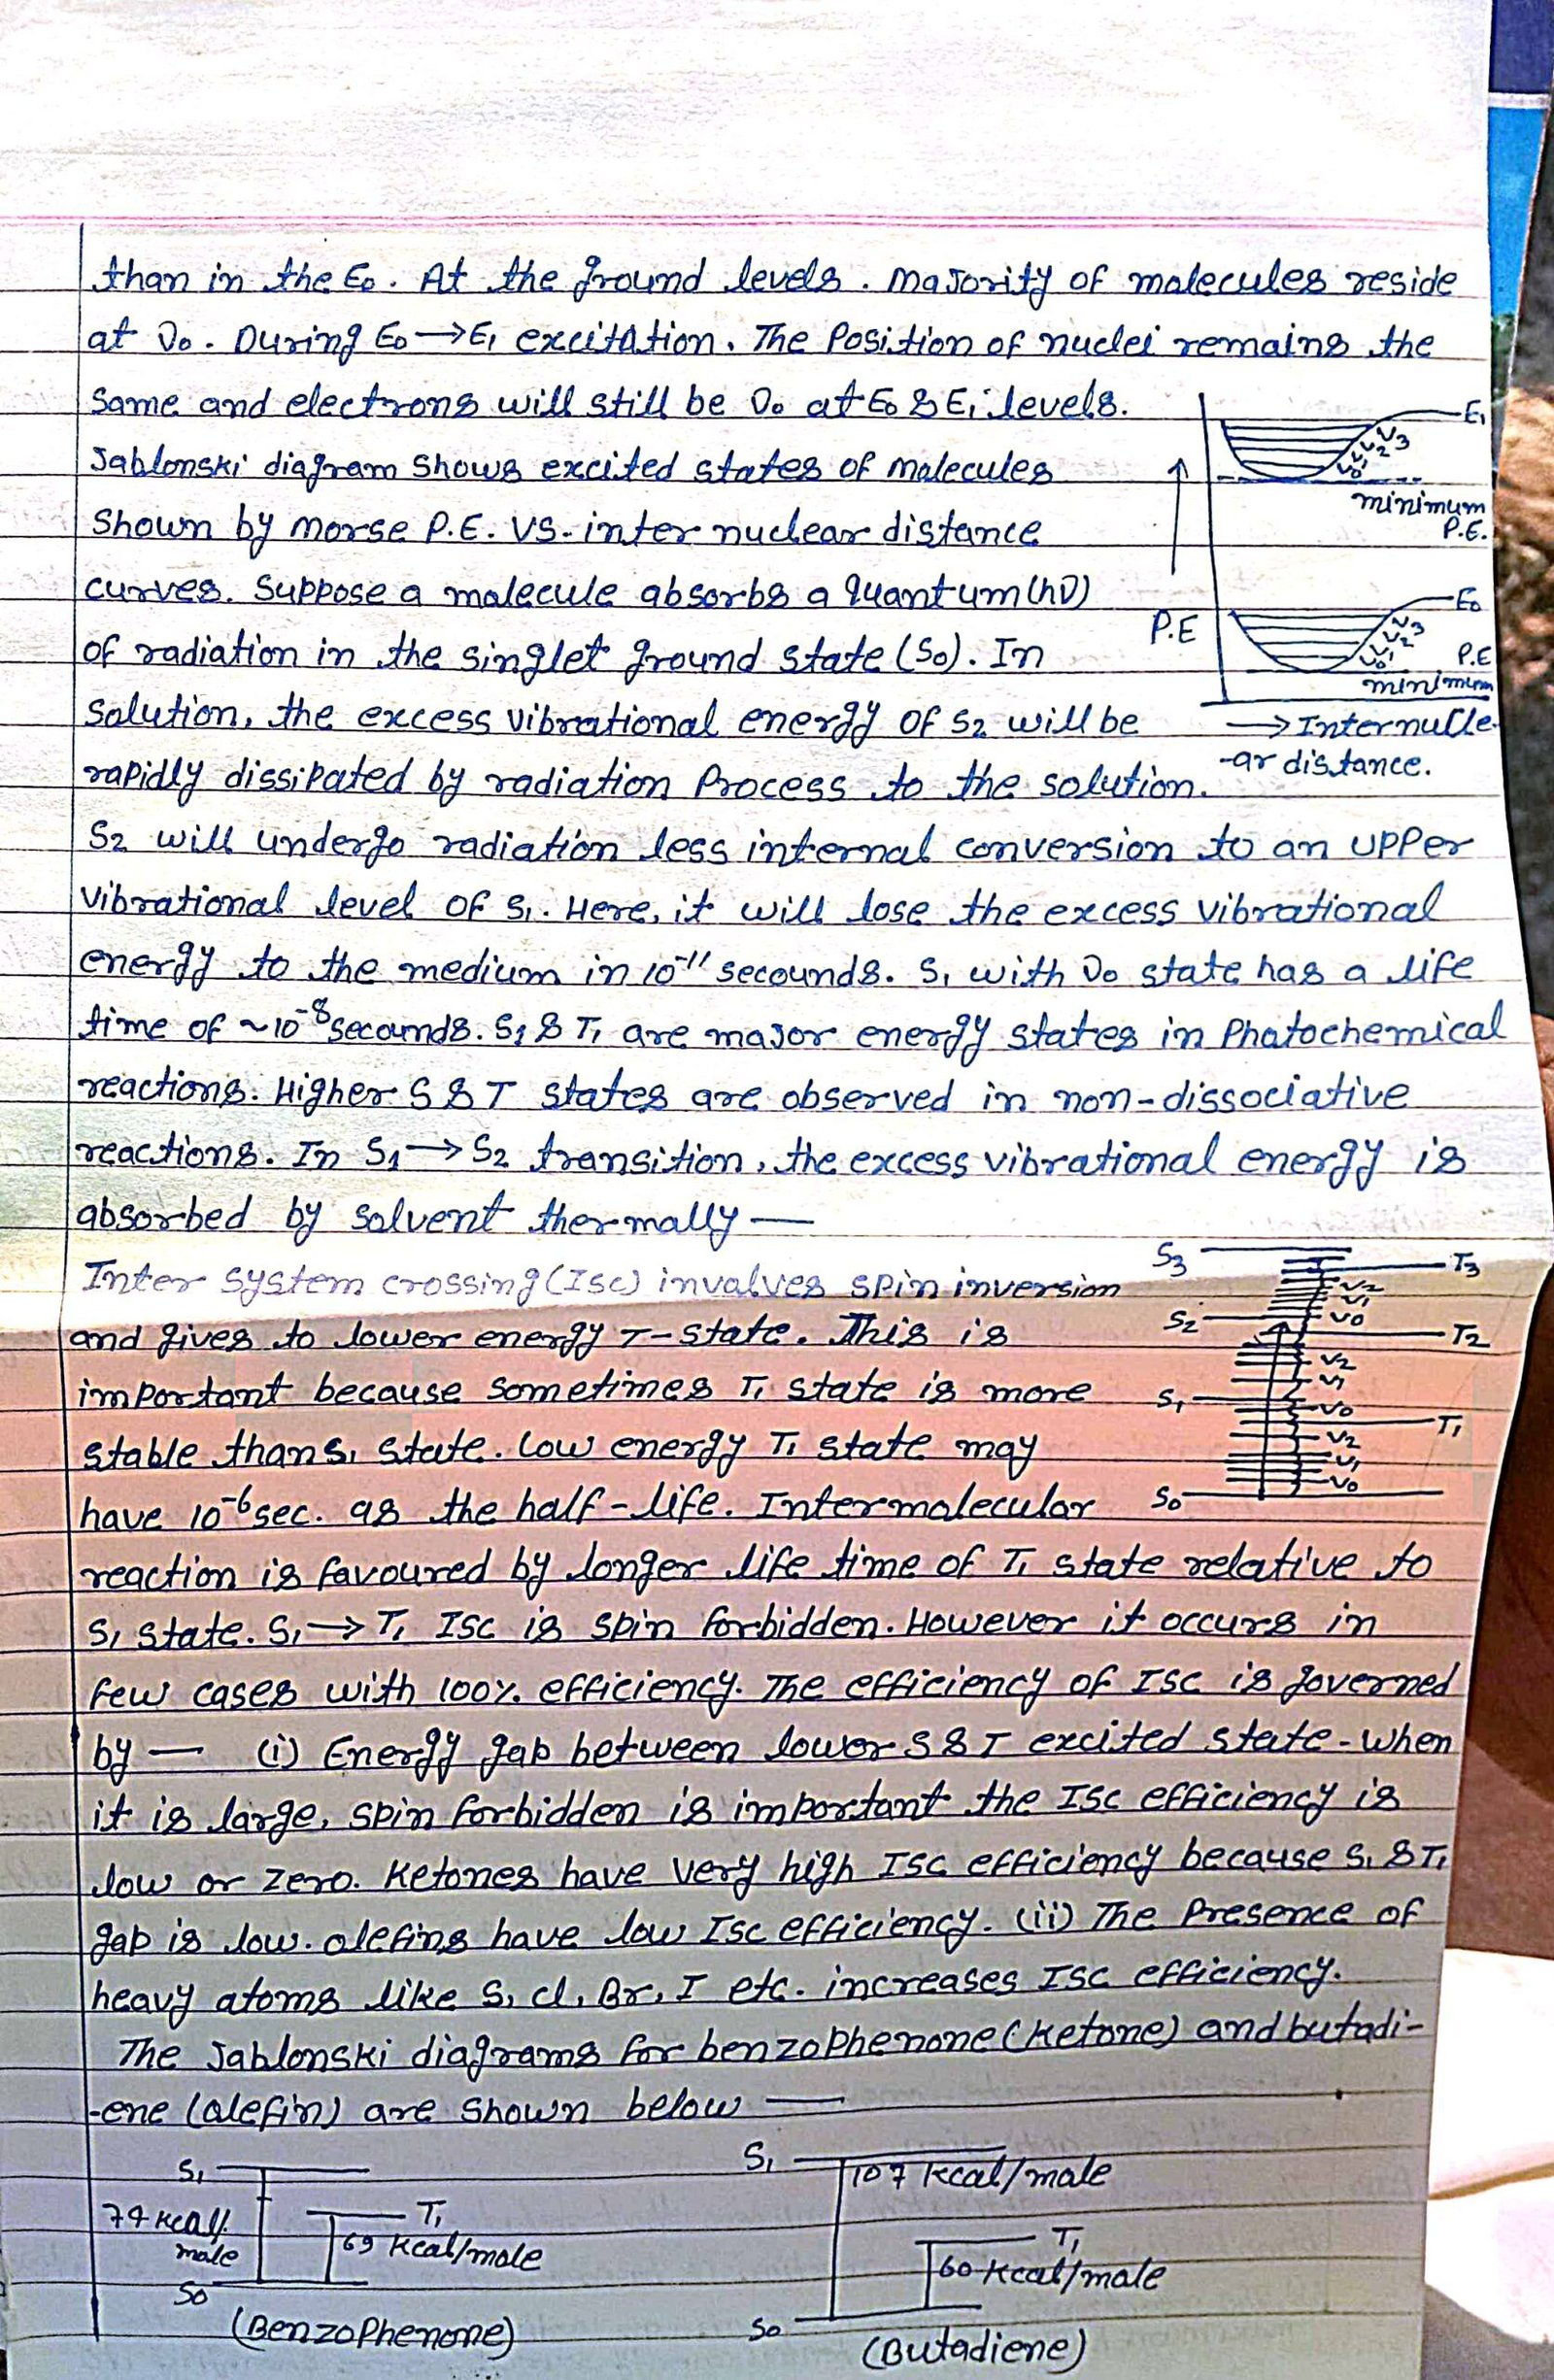 than in the E₀. At the ground levels. majority of molecules reside
at υ₀. During E₀→E₁ excitation. The Position of nuclei remains the
same and electrons will still be υ₀ at E₀ & E₁ levels.
Jablonski diagram shows excited states of molecules
shown by morse P.E. vs. inter nuclear distance
curves. Suppose a molecule absorbs a quantum (hυ)
of radiation in the singlet ground state (S₀). In
solution, the excess vibrational energy of S₂ will be
rapidly dissipated by radiation Process to the solution.
S₂ will undergo radiation less internal conversion to an upper
vibrational level of S₁. Here, it will lose the excess vibrational
energy to the medium in 10⁻¹¹ secounds. S₁ with υ₀ state has a life
time of ~10⁻⁸ secounds. S₁ & T₁ are major energy states in Photochemical
reactions. Higher S & T states are observed in non-dissociative
reactions. In S₁→S₂ transition, the excess vibrational energy is
absorbed by solvent thermally —
E₁
V₃
V₂
V₁
V₀
minimum
P.E.
E₀
V₃
V₂
V₁
V₀
P.E
minimum
P.E
→ Internucle-
-ar distance.
Inter system crossing (Isc) involves spin inversion
and gives to lower energy T-state. This is
important because sometimes T₁ state is more
stable than S₁ state. Low energy T₁ state may
have 10⁻⁶ sec. as the half-life. Intermolecular
reaction is favoured by longer life time of T₁ state relative to
S₁ state. S₁→T₁ ISC is spin forbidden. However it occurs in
few cases with 100% efficiency. The efficiency of ISC is governed
by — (i) Energy gap between lower S & T excited state - when
it is large, spin forbidden is important the ISC efficiency is
low or zero. Ketones have very high ISC efficiency because S₁ & T₁
gap is low. olefins have low ISC efficiency. (ii) The Presence of
heavy atoms like S, cl, Br, I etc. increases ISC efficiency.
S₃
T₃
V₂
V₁
V₀
S₂
T₂
V₂
V₁
S₁
V₀
T₁
V₂
V₁
V₀
S₀
The Jablonski diagrams for benzophenone (Ketone) and butadi-
-ene (olefin) are shown below —
S₁
74 Kcal/
mole
T₁
69 Kcal/mole
S₀
(Benzophenone)
S₁
107 Kcal/mole
T₁
60 Kcal/mole
S₀
(Butadiene)